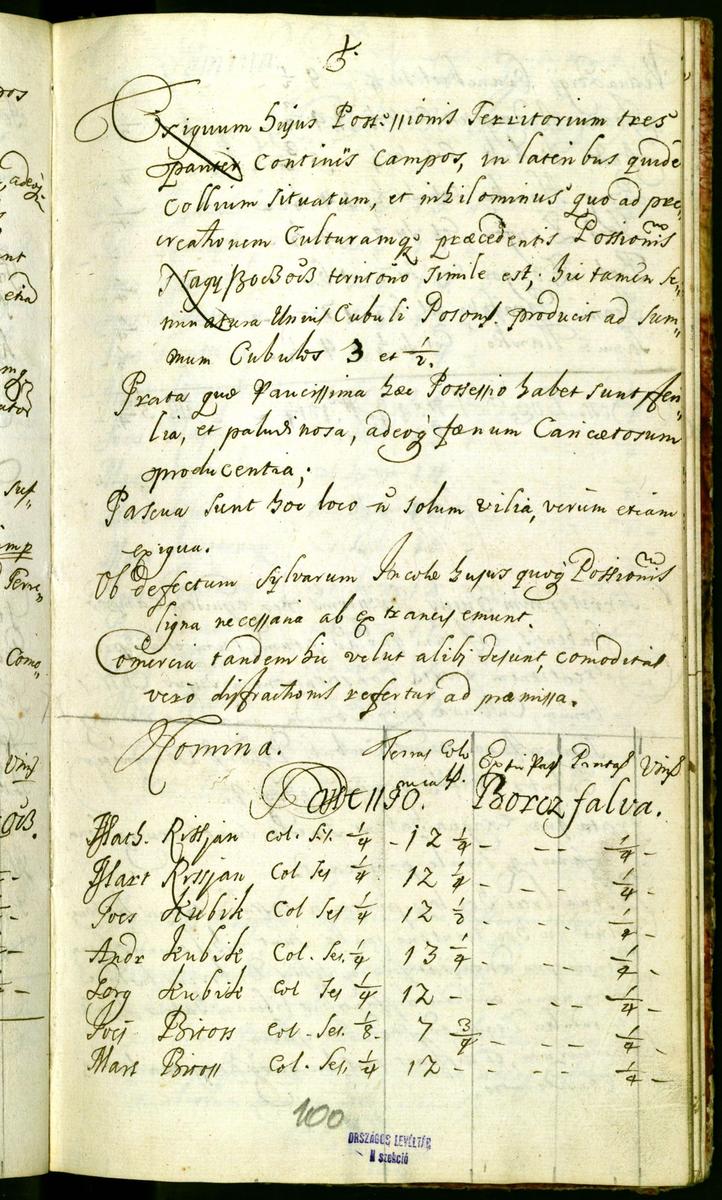 Exiguum hujus Possessionis Territorium tres
pariter Continës Campos, in lateribus quidë
Collium situatum, et inhilominus quo ad pro„
creationem Culturamq præcedentis Possionis
Nagy Bocsocz territorio simile est; hic tamen se„
minatura Unius Cubuli Poson. producit ad Sum„
mum Cubulos 3 et 1/2.
Prata quæ Paucissima hæc Possessio habet sunt
lia, et paludinosa, adeoq fænum Caricætosum
producentia;
Pascua sunt hoc loco ñ solum vilia, verùm etiam
exigua.
Ob defectum sylvarum Incolæ hujus quoq Possionis
ligna necessaria ab extraneis emunt.
Comercia tandem hic velut alibi desunt, comoditas
vero distractionis refertur ad præmissa.
Nomina. Terras Colo Extir Pas Prata Vin
nicals.
Possessio. Borczfalva.
Math. Rissjan Col. Ses. 1/4 - 12 1/4 - - - 1/4 -
Mart Rissjan Col Ses 1/4 12 1/4 - - - 1/4 -
Joes Kubik Col Ses 1/4 12 1/2 - - - 1/4 -
Andr Kubik Col. Ses. 1/4 13 1/4 - - - 1/4 -
Georg Kubik Col Ses 1/4 12 - - - - 1/4 -
Joes Bitoss Col. Ses. 1/8 - 7 3/4 - - - 1/4 -
Mart Bitoss Col. Ses. 1/4 12 - - - - 1/4 -
100
ORSZÁGOS LEVÉLTÁR
N szekció